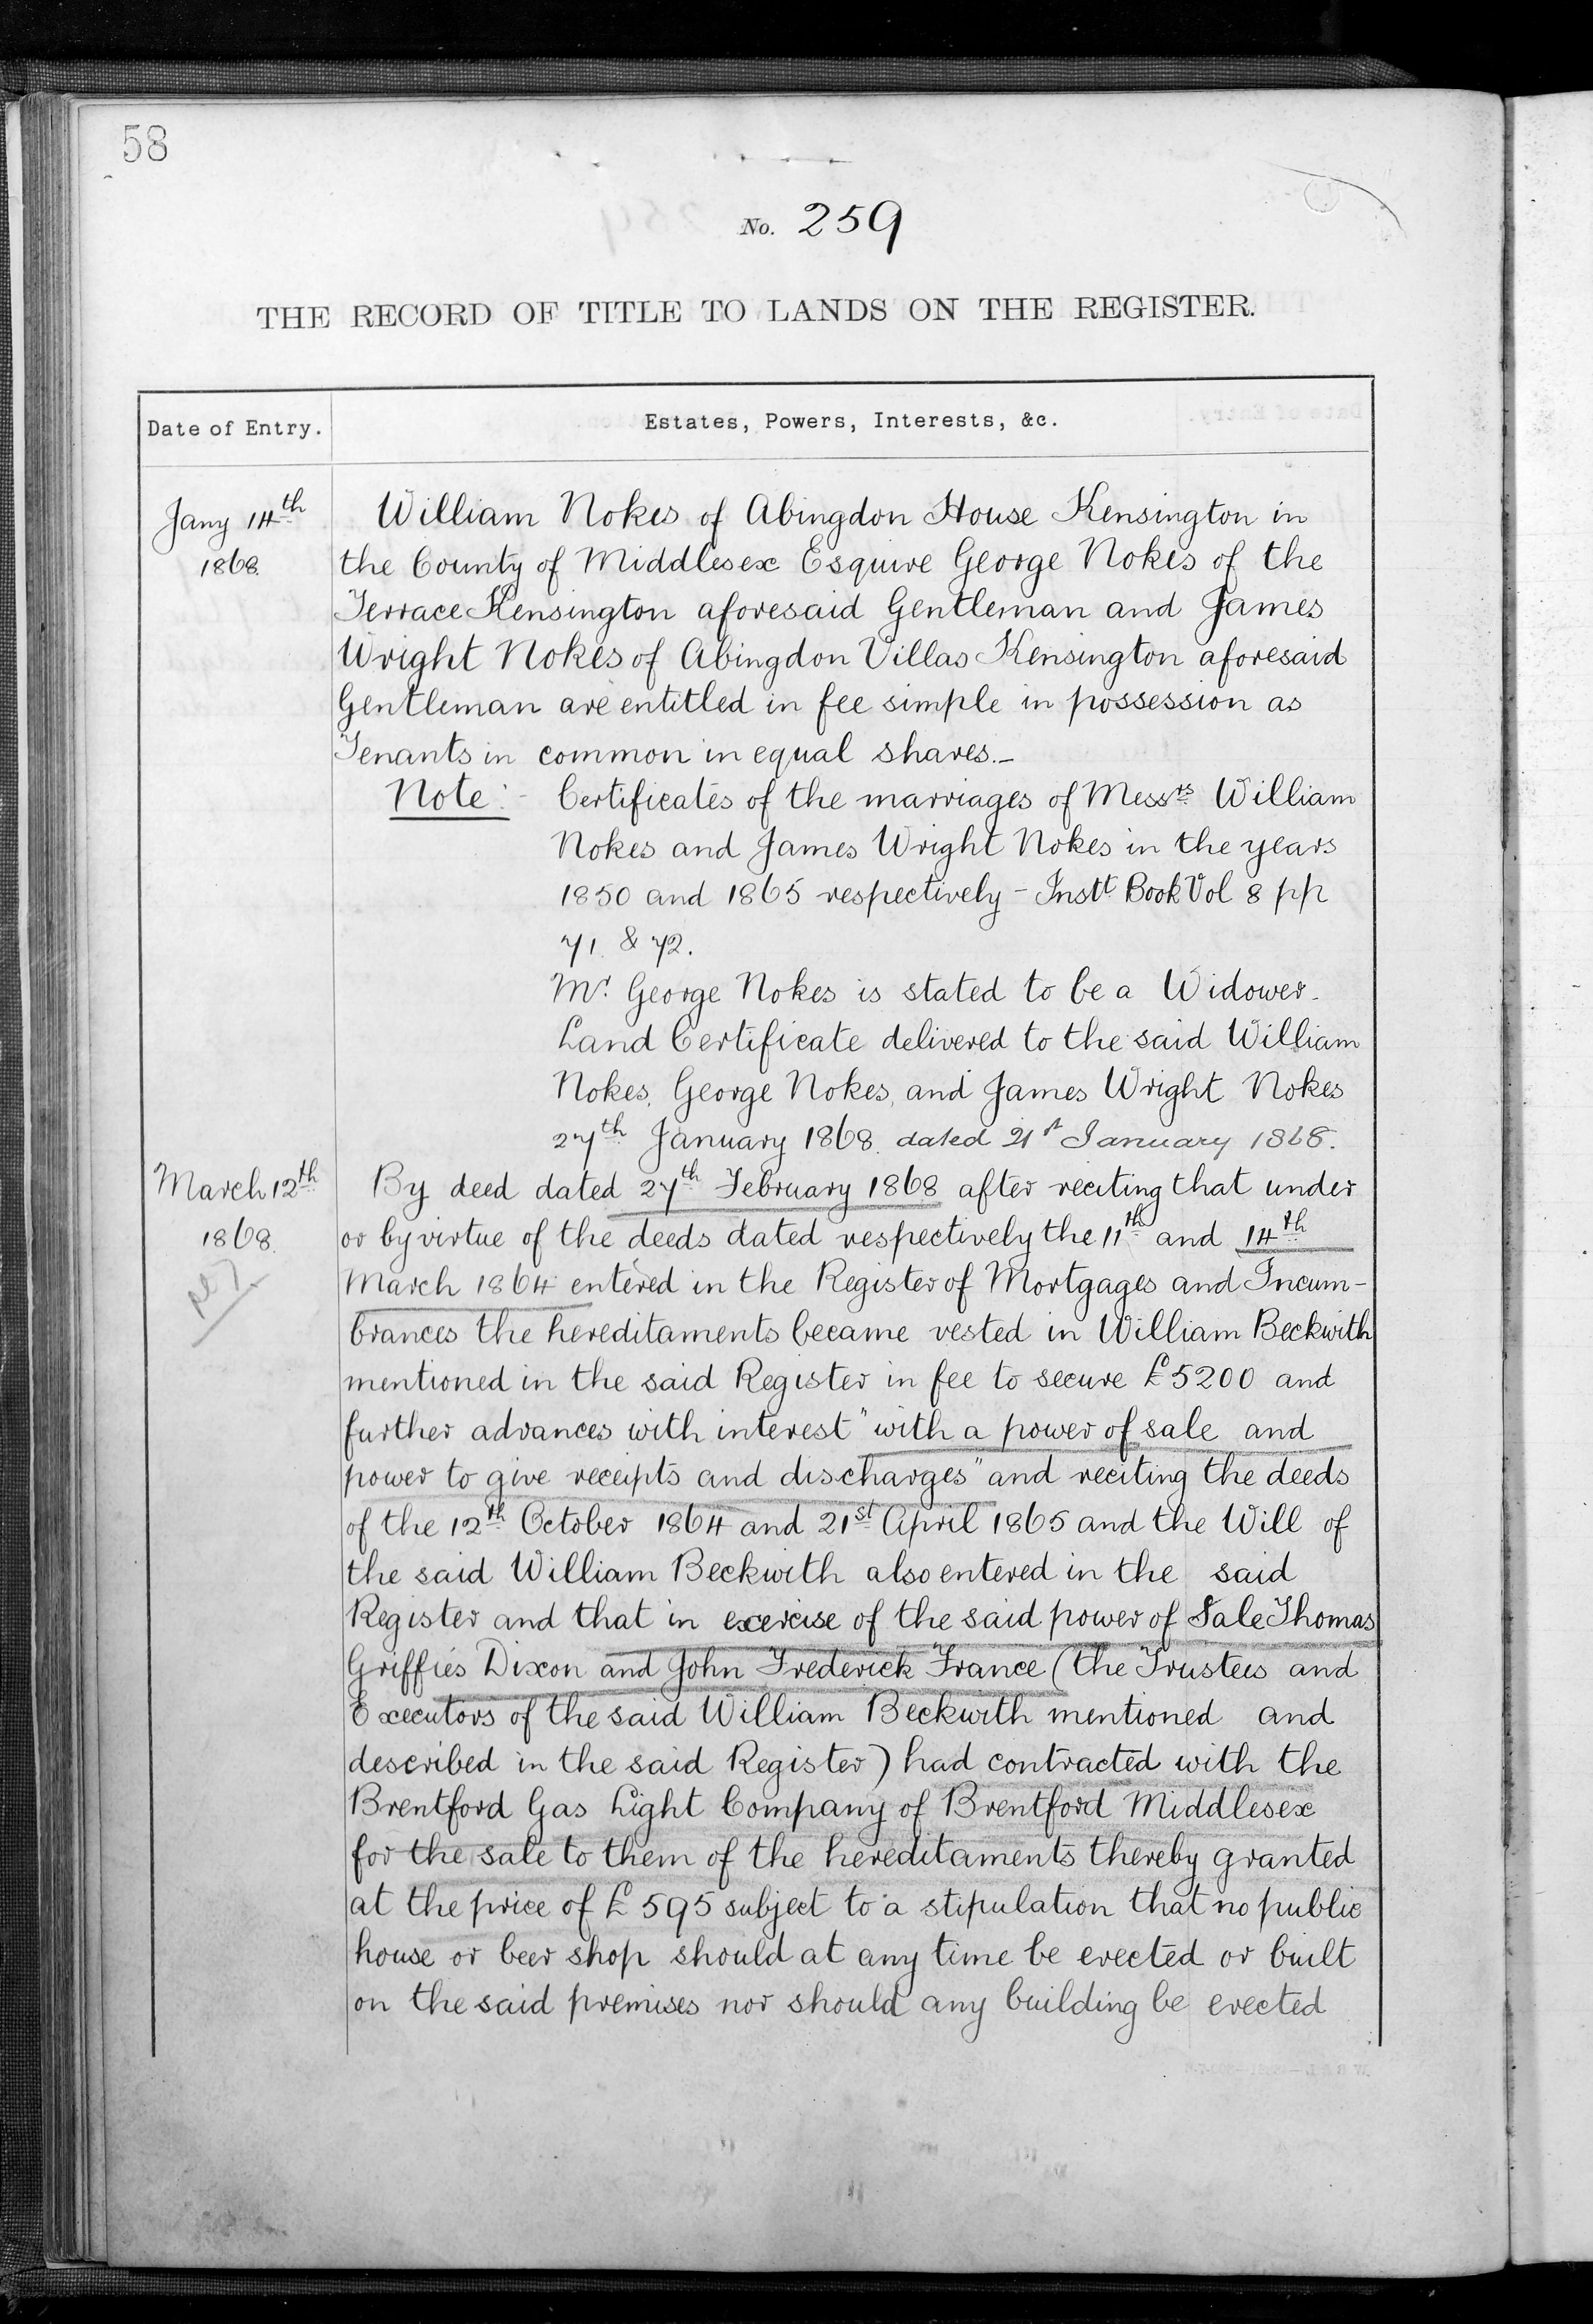 58
No. 259
THE RECORD OF TITLE TO LANDS ON THE REGISTER.
Date of Entry.
Estates, Powers, Interests, &c.
Jany 14th
1868.
William Nokes of Abingdon House Kensington in
the County of Middlesex Esquire George Nokes of the
Terrace Kensington aforesaid Gentleman and James
Wright Nokes of Abingdon Villas Kensington aforesaid
Gentleman are entitled in fee simple in possession as
Tenants in common in equal shares.-
Note:- Certificates of the marriages of Messrs William
Nokes and James Wright Nokes in the years
1850 and 1865 respectively - Instt Book Vol 8 pp
71. & 72.
Mr. George Nokes is stated to be a Widower.
Land Certificate delivered to the said William
Nokes, George Nokes, and James Wright Nokes
27th January 1868. dated 21st January 1868.
March 12th
1868.
By deed dated 27th February 1868 after reciting that under
or by virtue of the deeds dated respectively the 11th and 14th
March 1864 entered in the Register of Mortgages and Incum-
brances the hereditaments became vested in William Beckwith
mentioned in the said Register in fee to secure £5200 and
further advances with interest "with a power of sale and
power to give receipts and discharges" and reciting the deeds
of the 12th October 1864 and 21st April 1865 and the Will of
the said William Beckwith also entered in the said
Register and that in exercise of the said power of Sale Thomas
Griffies Dixon and John Frederick France (the Trustees and
Executors of the said William Beckwith mentioned and
described in the said Register) had contracted with the
Brentford Gas Light Company of Brentford Middlesex
for the sale to them of the hereditaments thereby granted
at the price of £595 subject to a stipulation that no public
house or beer shop should at any time be erected or built
on the said premises nor should any building be erected